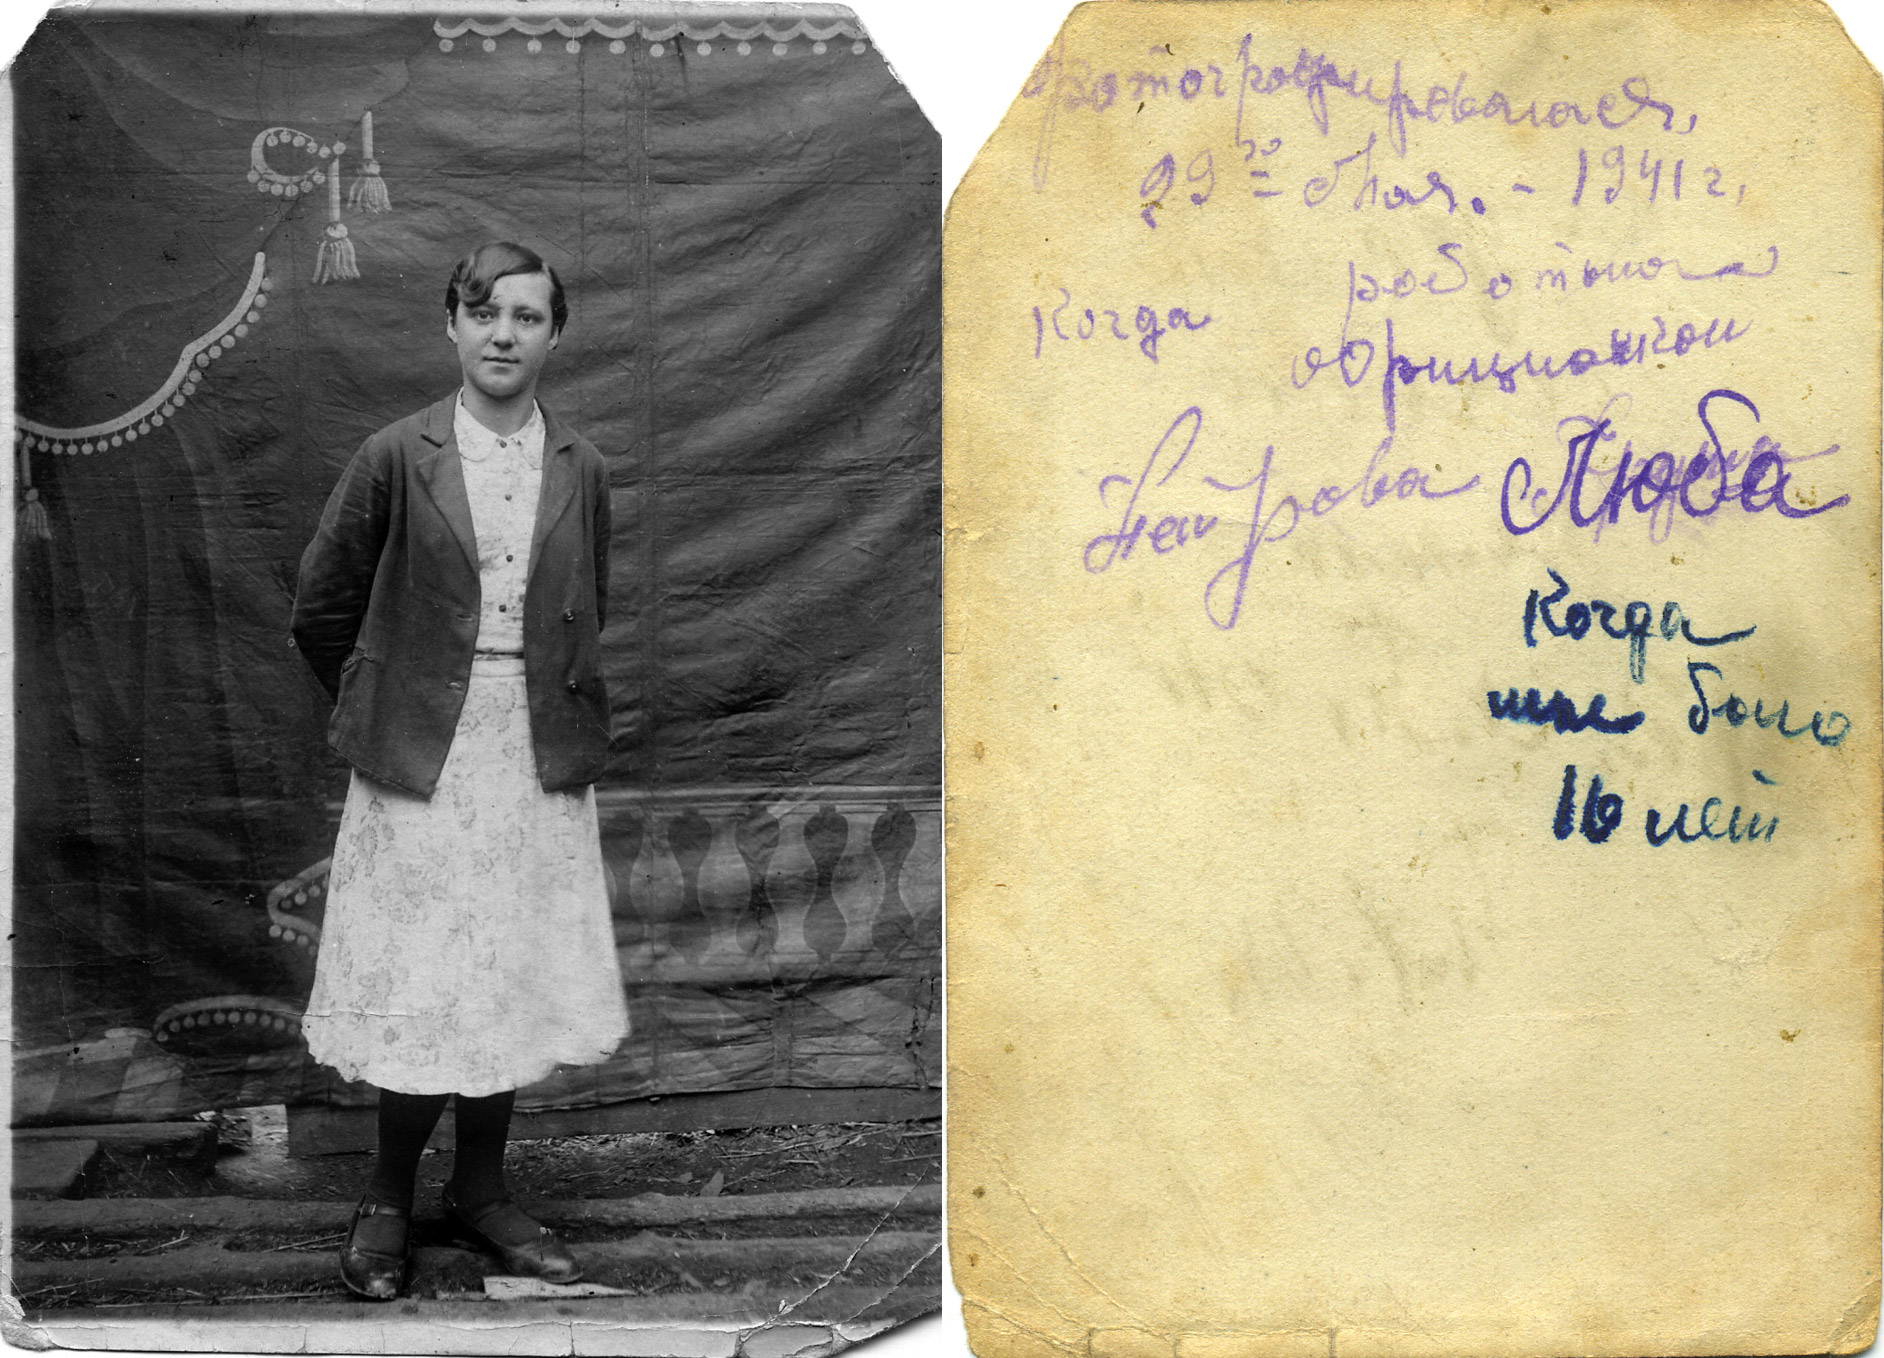 Фотографировалася,
29го Мая. - 1941 г,
Когда работала
официанкой
Петрова Люба
Когда
мне было
16 лет